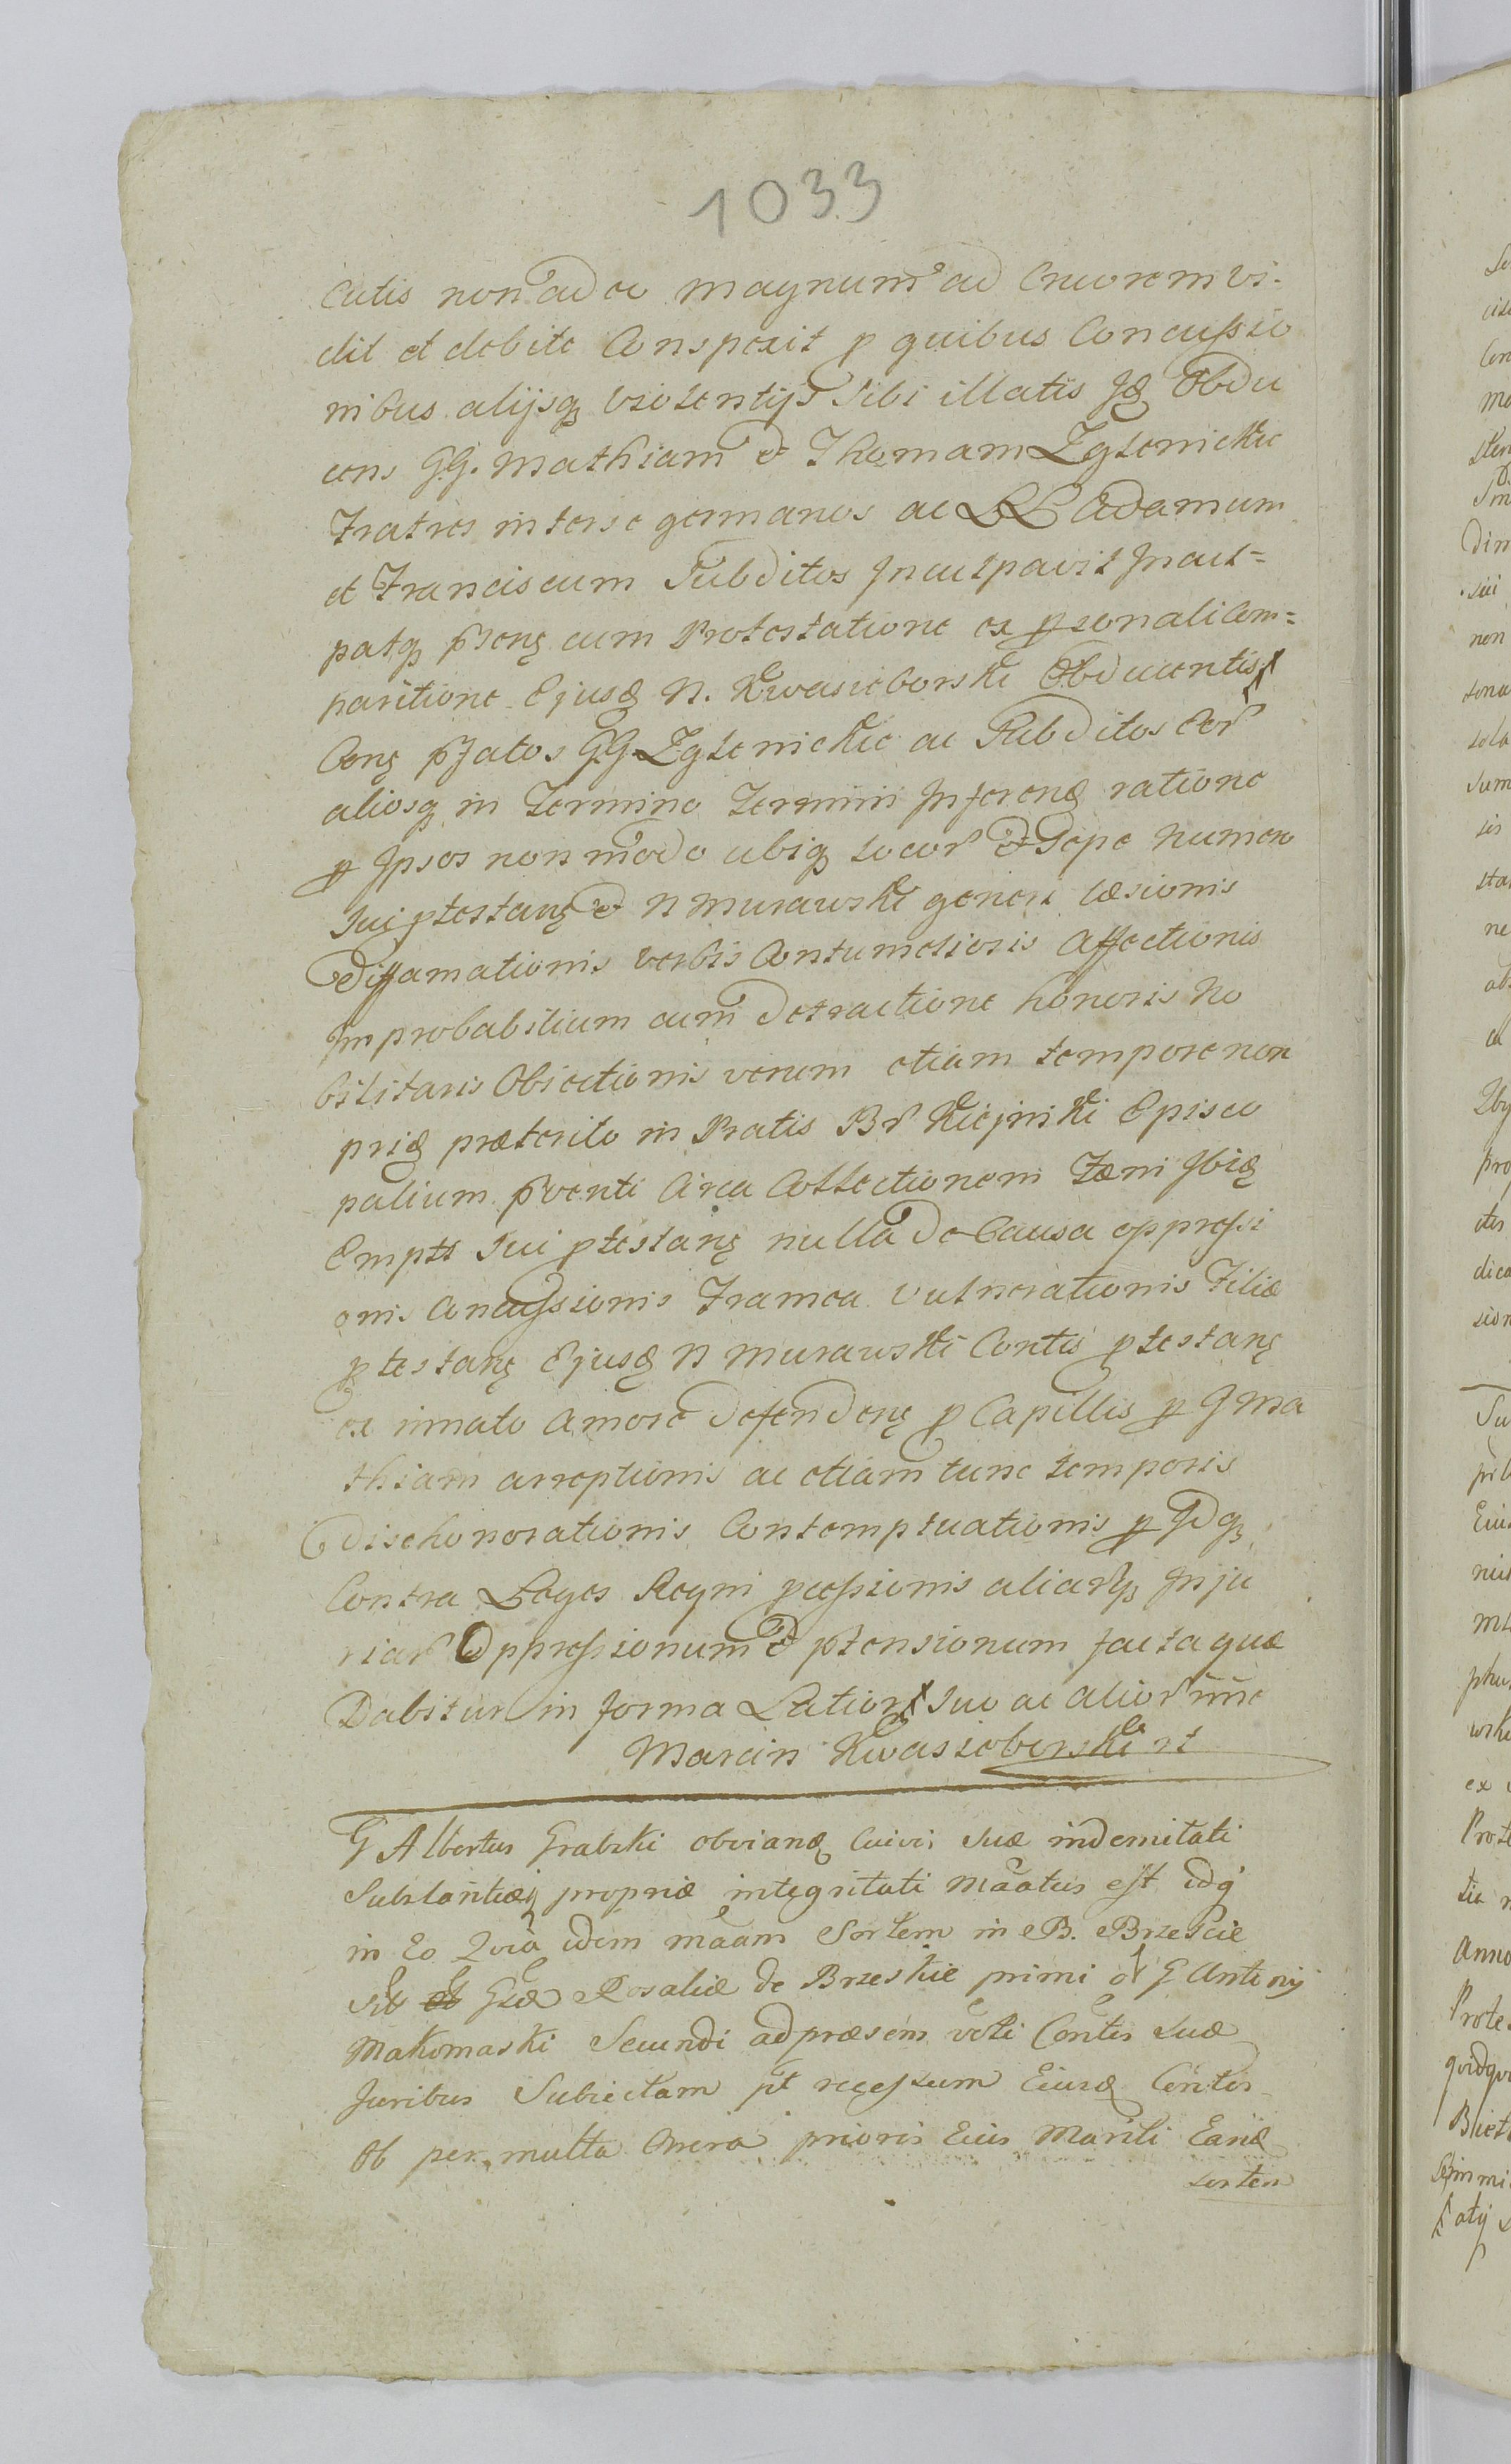 1033
cutis non adeo magnum ad Cruorem vi-
dit et debite Conspexit p quibus Concussio
nibus alijsq violentijs sibi illatis Jd Obdu
cens GG. Mathiam et Thomam Zglenickie
Fratres inter se germanos ac LL Adamum
et Franciscum Subditos Inculpavit Incul=
patq pñens cum Protestatione ex psonali Com=
paritione Ejusd N. Kwasieborski Obducentis
Cong pfatos GG. Zglenickie ac Subditos eor
aliosq in Termino Termini Inferend ratione
p Ipsos non modo ubiq locor et Sepe numero
sui ptestang et N Murawski generi læsionis
Diffamationis verbis Contumeliosis Affectionis
Improbabilium cum Detractione honoris No
bilitaris Obiectionis verum etiam tempore non
prid præterito in Pratis Br Kiejnski Episco
palium pventi Circa Collectionem Fæni Ibid
Empti sui ptestang nulla De Causa oppressi
onis Concussionis Framea vulnerationis Filiæ
ptestang Ejusd N Murawski Contis ptestang
ex innato amore Defendeng p Capillis p G Ma
thiam arreptionis ac etiam tunc temporis
Dischonorationis Contemptuationis p Idq
Contra Leges Regni pcessionis aliarq Inju
riar Oppressionum et ptensionum facta quæ
Dabitur in forma Latior suo ac alior nñe
Marcin Kwasieborski
G Albertus Grabski obviand Cuivis suæ indemitati
Substantiæq propriæ integritati maatus est idq
in Eo Quia idem maam Sortem in B. Brzescie
Gsæ Rosaliæ de Brzeskie primi G Antonij
Makomaski Secundi ad præsens voti Contis suæ
Juribus Subiectam pt recessum Eiusd Contis
Ob per multa Onera prioris Eius Mariti Eand
sortem